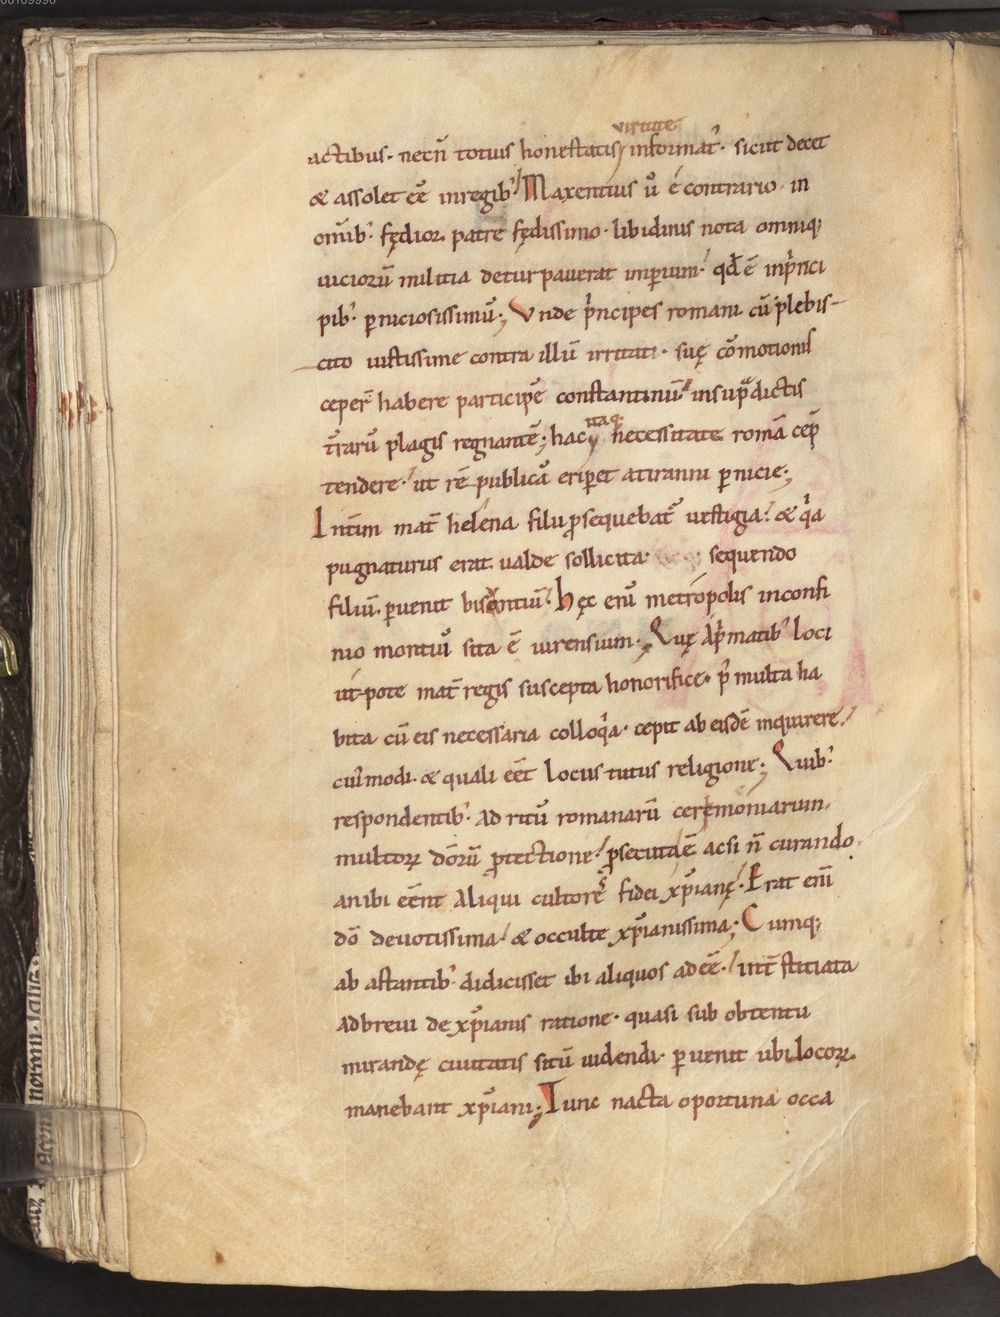 virtute
actibus· necn̄ totius honestatis informat᷒· sicut decet
& assolet eē̄ inregib᷒ Maxentius ů é contrario· in
om̄ib᷒· fędior patre fędissimo· libidinis nota omniq;
uiciorū militia deturpauerat imꝑium· qd̄ ē inpͥnci
pib᷒ ꝑniciosissimū; Vnde pͥncipes romani cū plebis-
cito iustissime contra illū irritati· suę cōmotionis
ceper̄ habere participē constantinū· insupͣdictis
tr̄arū plagis regnantē; hac itaq; necessitate romā cep̄
tendere· ut rē publicā eriꝑet atiranni ꝑnicie;
Intim mat̄ helena filii ꝓsequebat᷒ uestigia· & qͥa
pugnaturus erat ualde sollicita· sequendo
filiū· ꝑuenit bisontiū· hęc enī metropolis inconfi
nio montiū sita ē iurensium; Quę Apͥmatib᷒ loci
ut-pote mat̄ regis suscepta honorifice· p᷒ multa ha
bita cū eis necessaria colloqͥa· cepit ab eisdē inquirere·
cui᷒modi· & quali eēt locus tutus religione; Quib᷒
respondentib᷒· Ad ritū romanarū ceremoniarum·
multoꝝ dōrū ꝓtectione ꝓsecuta ē acsi n̄ curando
anibi eēnt Aliqui cultores fidei xp̄ianę· Erat enī
dō deuotissima· & occulte xp̄ianissima; Cumq;
ab astantib᷒ didicisset ibi aliquos adeē· int̄stitiata
Adbreui de xp̄ianis ratione· quasi sub obtentu
mirandę ciuitatis sitū uidendi· ꝑuenit ubi locoꝝ
manebant xp̄iani; Tunc nacta oportuna occa